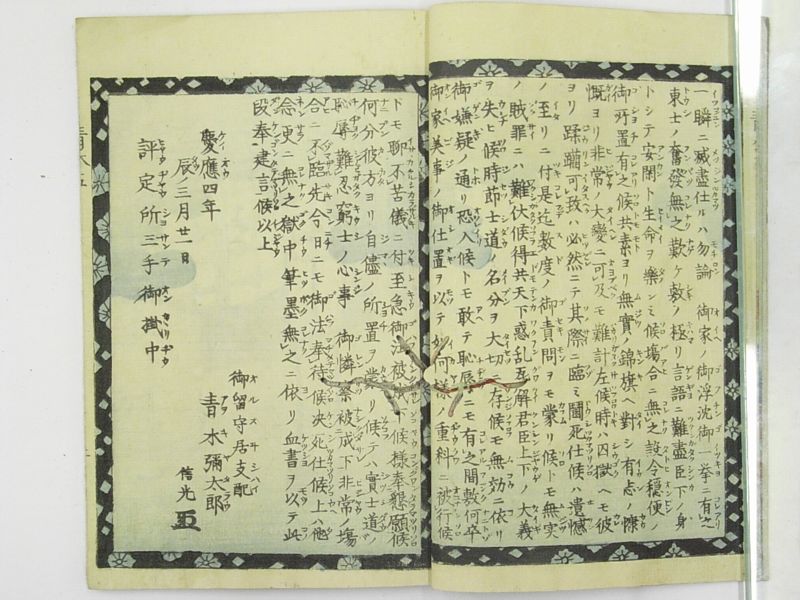 一瞬ニ滅盡仕ルハ勿論 御家ノ御浮沈御一挙ニ有之
東士ノ奮發無之歎ケ敷ノ極リ言語ニ難盡臣下ノ身
トシテ安閑ト生命ヲ樂ンミ候場合ニ無之設令穏便ノ
御所置有之候共素ヨリ無實ノ錦旗ヘ對シ有志ノ際
慨ヨリ非常ノ大變ニ可及モ難計左候時ハ囚獄ヘモ彼
ヨリ蹂躙可致ハ必然ニテ其際ニ臨ミ闘死仕候ハ遺憾
ノ至リニ付是迄数度ノ御責問ヲモ蒙リ候トモ無実
ノ賊罪ニハ難伏候得共天下惑乱瓦解君臣上下ノ大義
ヲ失ヒ候時節士道ノ名分ヲ大切ニ存候モ無効ニ依リ
御嫌疑ノ通リ恐入候トモ敢テ恥辰ニモ有之間敷何卒
御家美事ノ御仕置ヲモツテ如何様ノ重科ニ被行候
トモ聊不苦儀ニ付至急御沙汰被成下候様奉懇願候
何分彼方ヨリ自儘ノ所置ヲ受リ候テハ實士道ノ
恥辱難忍窮士ノ心事 御憐察被成下非常ノ場
合ニ不臨先今日ニモ御法奉待候決死仕候上ハ他
念更ニ無之獄中筆墨無之ニ依リ血書ヲ以テ此
段奉建言候以上
慶應四年
辰三月廿一日
御留守居支配
青木彌太郎
信光
評定所三手御掛中